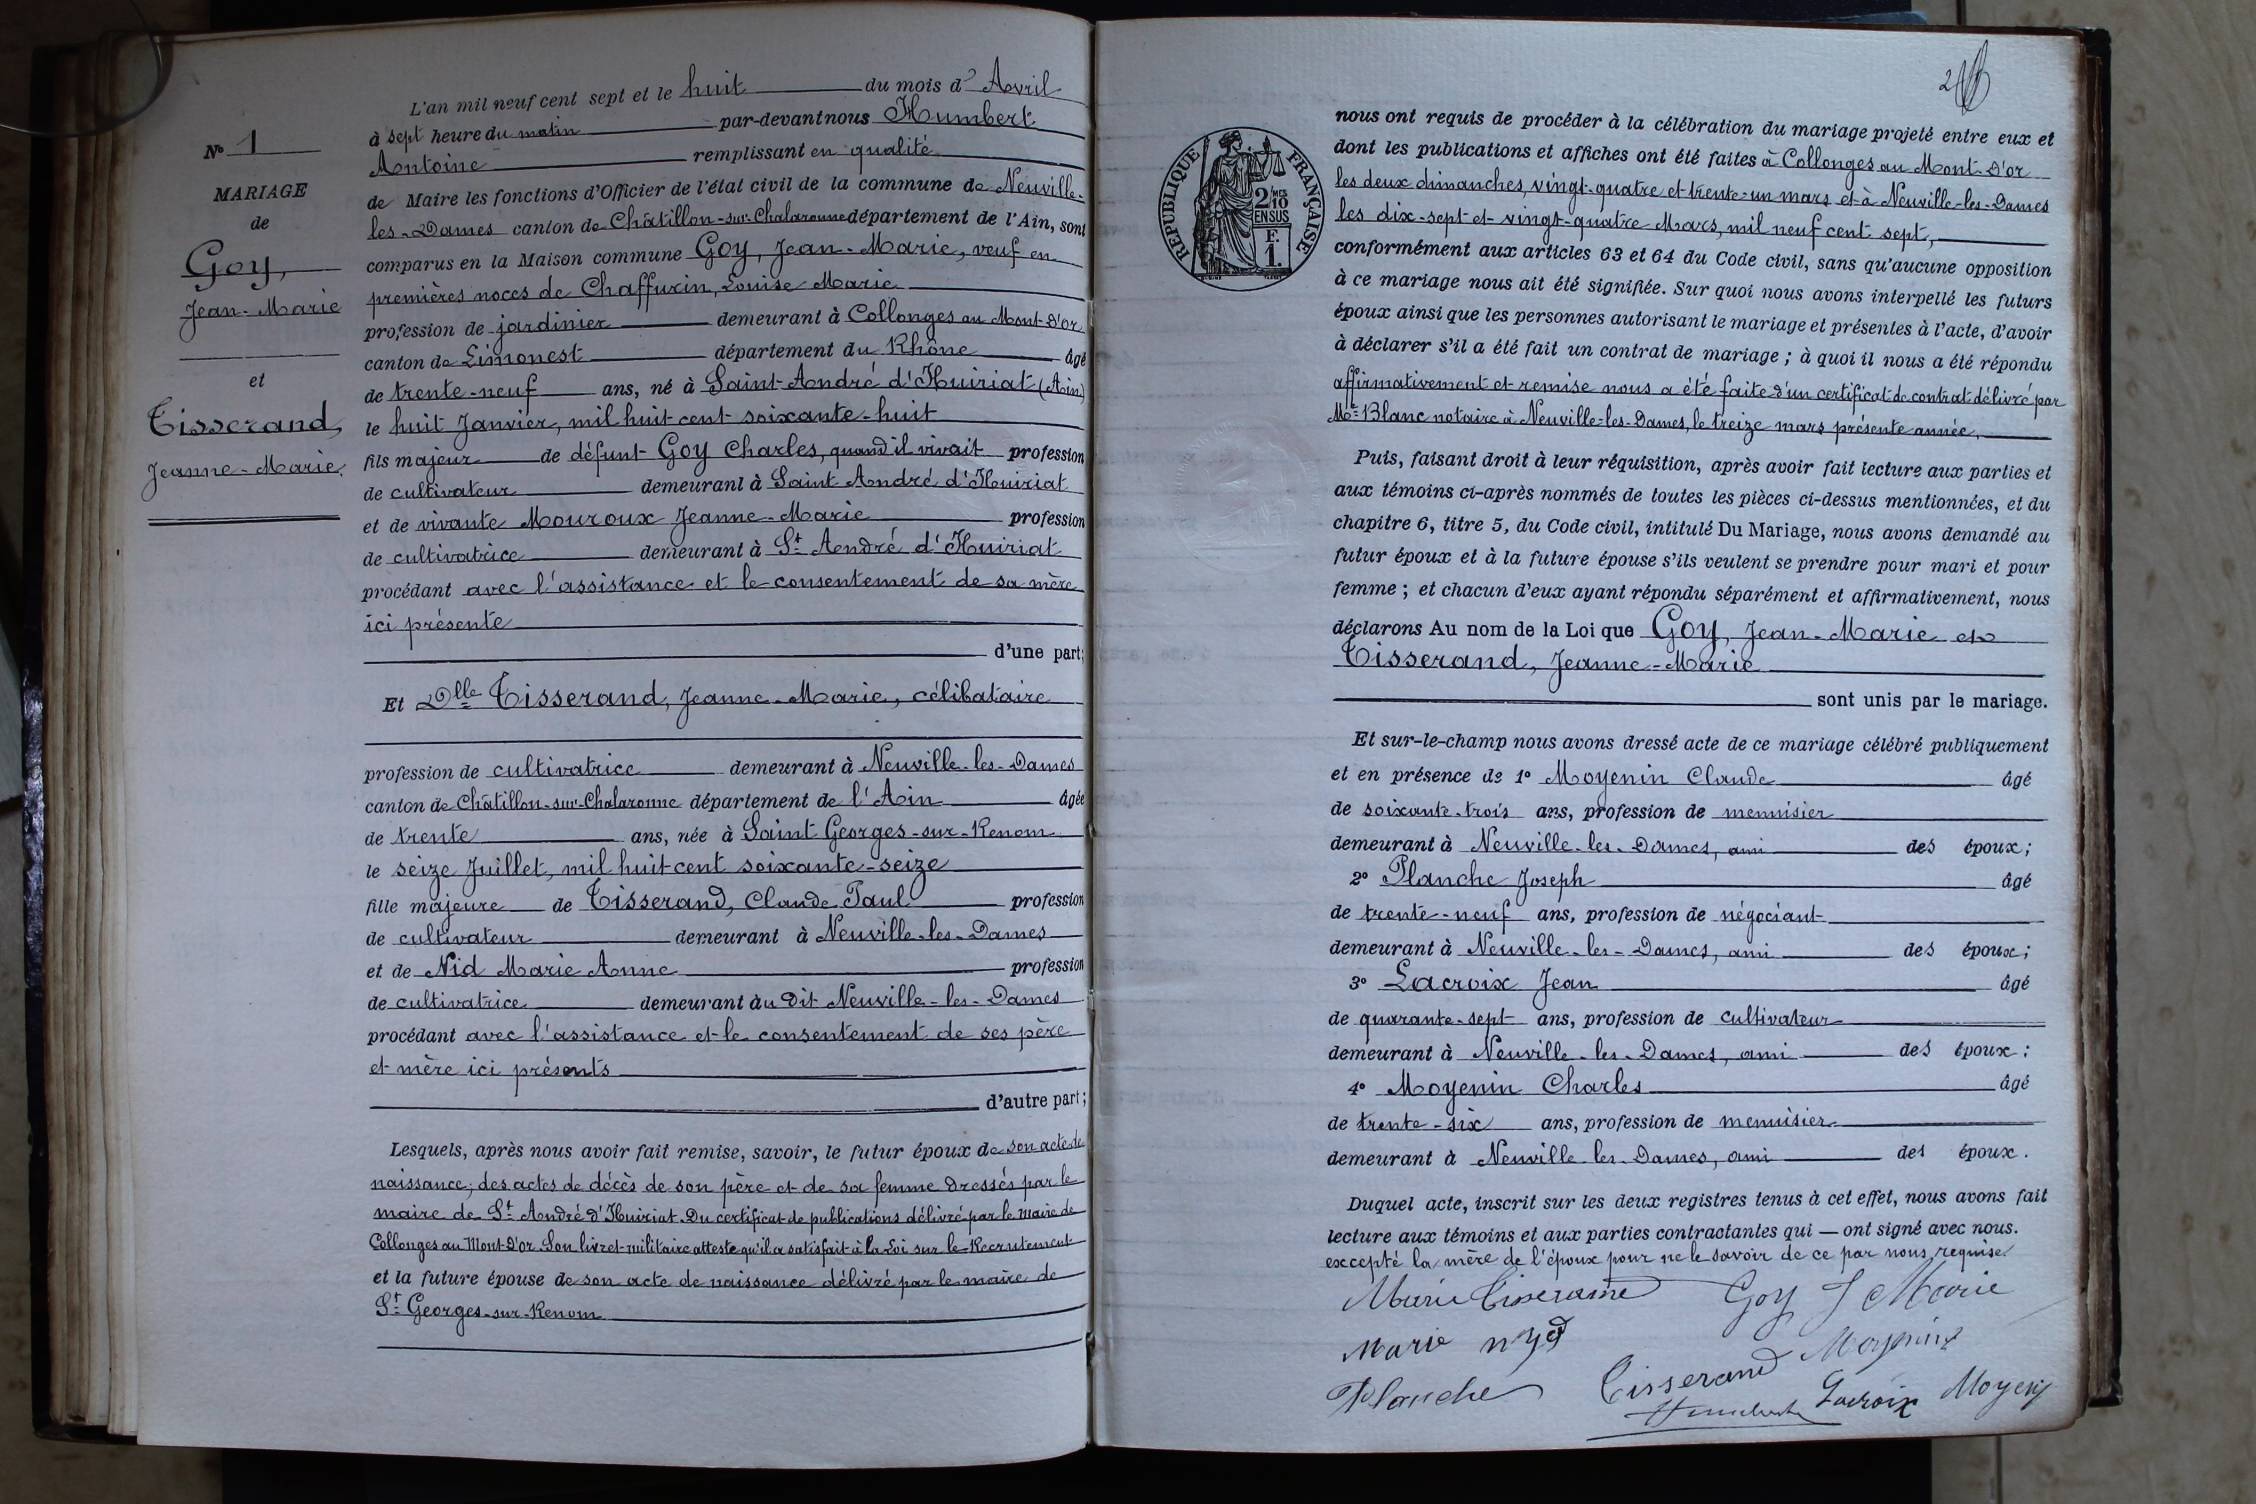 L'an mil neuf cent sept et le huit du mois d' Avril
à sept heure du matin par-devant nous Humbert
Antoine remplissant en qualité
de Maire les fonctions d'Officier de l'état civil de la commune de Neuville-
les-Dames canton de Châtillon-sur-Chalaronne département de l'Ain, sont
comparus en la Maison commune Goy, Jean-Marie, veuf en
premières noces de Chaffurin, Louise Marie
profession de jardinier demeurant à Collonges au Mont-D'or
canton de Limonest département du Rhône âgé
de trente-neuf ans, né à Saint-André d'Huiriat (Ain)
le huit Janvier, mil huit cent soixante-huit
fils majeur de défunt Goy Charles, quand il vivait profession
de cultivateur demeurant à Saint André d'Huiriat
et de vivante Mouroux Jeanne-Marie profession
de cultivatrice demeurant à St André d'Huiriat
procédant avec l'assistance et le consentement de sa mère
ici présente
d'une part;
Et Dlle Tisserand, Jeanne-Marie, célibataire
profession de cultivatrice demeurant à Neuville-les-Dames
canton de Châtillon-sur-Chalaronne département de l'Ain âgée
de trente ans, née à Saint Georges-sur-Renom
le seize Juillet, mil huit cent soixante-seize
fille majeure de Tisserand, Claude Paul profession
de cultivateur demeurant à Neuville-les-Dames
et de Nid Marie Anne profession
de cultivatrice demeurant àu dit Neuville-les-Dames
procédant avec l'assistance et le consentement de ses père
et mère ici présents
d'autre part;
Lesquels, après nous avoir fait remise, savoir, le futur époux de son acte de
naissance; des actes de décès de son père et de sa femme dressés par le
maire de St André d'Huiriat. Du certificat de publications délivré par le maire de
Collonges au Mont-D'or. Son livret militaire atteste qu'il a satisfait à la Loi sur le Recrutement
et la future épouse de son acte de naissance délivré par le maire de
St Georges-sur-Renom
No 1
MARIAGE
de
Goy,
Jean-Marie
et
Tisserand,
Jeanne-Marie.
RÉPUBLIQUE FRANÇAISE
2 MES
10
EN SUS
F.
1.
nous ont requis de procéder à la célébration du mariage projeté entre eux et
dont les publications et affiches ont été faites à Collonges au Mont-D'or
les deux dimanches, vingt-quatre et trente-un mars et à Neuville-les-Dames
les dix-sept et vingt-quatre Mars, mil neuf cent sept,
conformément aux articles 63 et 64 du Code civil, sans qu'aucune opposition
à ce mariage nous ait été signifiée. Sur quoi nous avons interpellé les futurs
époux ainsi que les personnes autorisant le mariage et présentes à l'acte, d'avoir
à déclarer s'il a été fait un contrat de mariage; à quoi il nous a été répondu
affirmativement et remise nous a été faite d'un certificat de contrat délivré par
Me Blanc notaire à Neuville-les-Dames, le treize mars présente année,
Puis, faisant droit à leur réquisition, après avoir fait lecture aux parties et
aux témoins ci-après nommés de toutes les pièces ci-dessus mentionnées, et du
chapitre 6, titre 5, du Code civil, intitulé Du Mariage, nous avons demandé au
futur époux et à la future épouse s'ils veulent se prendre pour mari et pour
femme; et chacun d'eux ayant répondu séparément et affirmativement, nous
déclarons Au nom de la Loi que Goy, Jean-Marie et
Tisserand, Jeanne-Marie
sont unis par le mariage.
Et sur-le-champ nous avons dressé acte de ce mariage célébré publiquement
et en présence de 1° Moyenin Claude âgé
de soixante-trois ans, profession de menuisier
demeurant à Neuville-les-Dames, ami des époux;
2° Planche Joseph âgé
de trente-neuf ans, profession de négociant
demeurant à Neuville-les-Dames, ami des époux;
3° Lacroix Jean âgé
de quarante-sept ans, profession de cultivateur
demeurant à Neuville-les-Dames, ami des époux;
4° Moyenin Charles âgé
de trente-six ans, profession de menuisier
demeurant à Neuville-les-Dames, ami des époux.
Duquel acte, inscrit sur les deux registres tenus à cet effet, nous avons fait
lecture aux témoins et aux parties contractantes qui — ont signé avec nous.
excepté la mère de l'époux pour ne le savoir de ce par nous requise.
Marie Tisserand Goy J Marie
Marie nyd Moyenin
Planche Tisserand Lacroix
Humbert